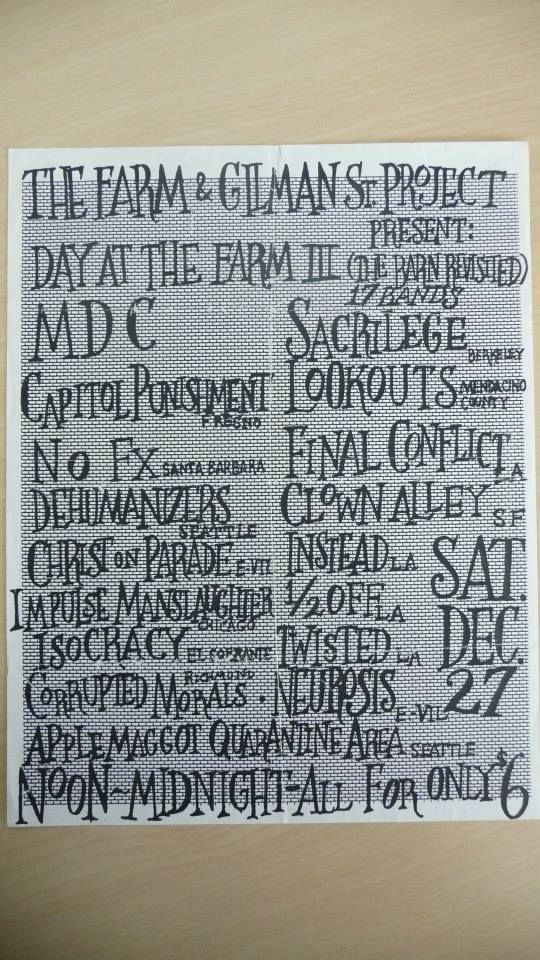 THE FARM & GILMAN ST. PROJECT
PRESENT:
DAY AT THE FARM III (THE BARN REVISITED)
17 BANDS
MDC
SACRILEGE BERKELEY
CAPITOL PUNISHMENT FRESNO
LOOKOUTS MENDACINO COUNTY
NO FX SANTA BARBARA
FINAL CONFLICT LA
DEHUMANIZERS SEATTLE
CLOWN ALLEY SF
CHRIST ON PARADE E-VIL
INSTEAD LA
IMPULSE MANSLAUGHTER CHICAGO
1/2 OFF LA
ISOCRACY EL SOBRANTE RICHMOND
TWISTED LA
SAT. DEC. 27
CORRUPTED MORALS · NEUROSIS E-VIL
APPLE MAGGOT QUARANTINE AREA SEATTLE
NOON~MIDNIGHT-ALL FOR ONLY $6